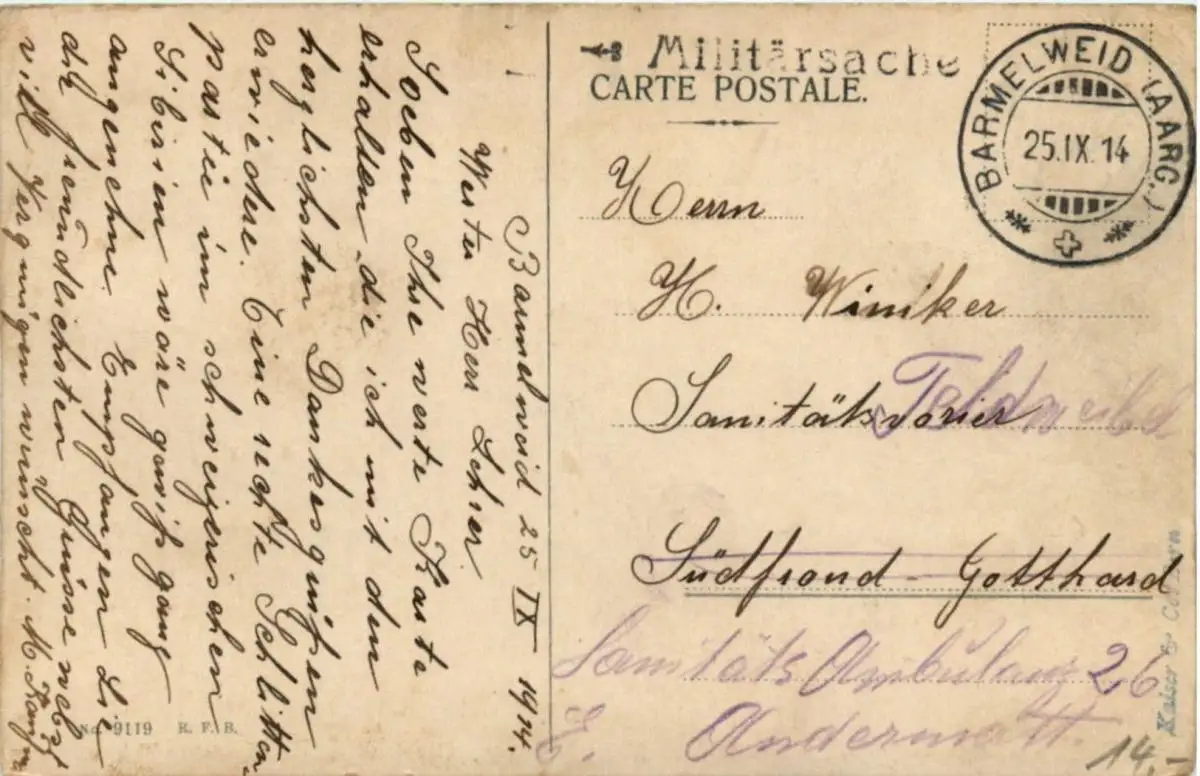 Barmelweid 25 IX 1914.
Werter Herr Lehrer
Soeben Ihre werte Karte
erhalten, die ich mit den
herzlichsten Dankesgrüßen
erwiedere. Eine rechte Schlitten-
partie im schweizerischen
Sibirien wäre gewiß ganz
angenehm. Empfangen Sie
die freundlichsten Grüsse nebst
viel Vergnügen wünscht M.
No. 9119 R. F. B.
Militärsache
CARTE POSTALE.
BARMELWEID (AARG.)
25.IX.14
Herrn
H. Winiker
Sanitätsvorier
Feldweibel
Südfrond - Gotthard
Sanitäts Ambulanz 26
E. Andermatt.
14.-
Kaiser &